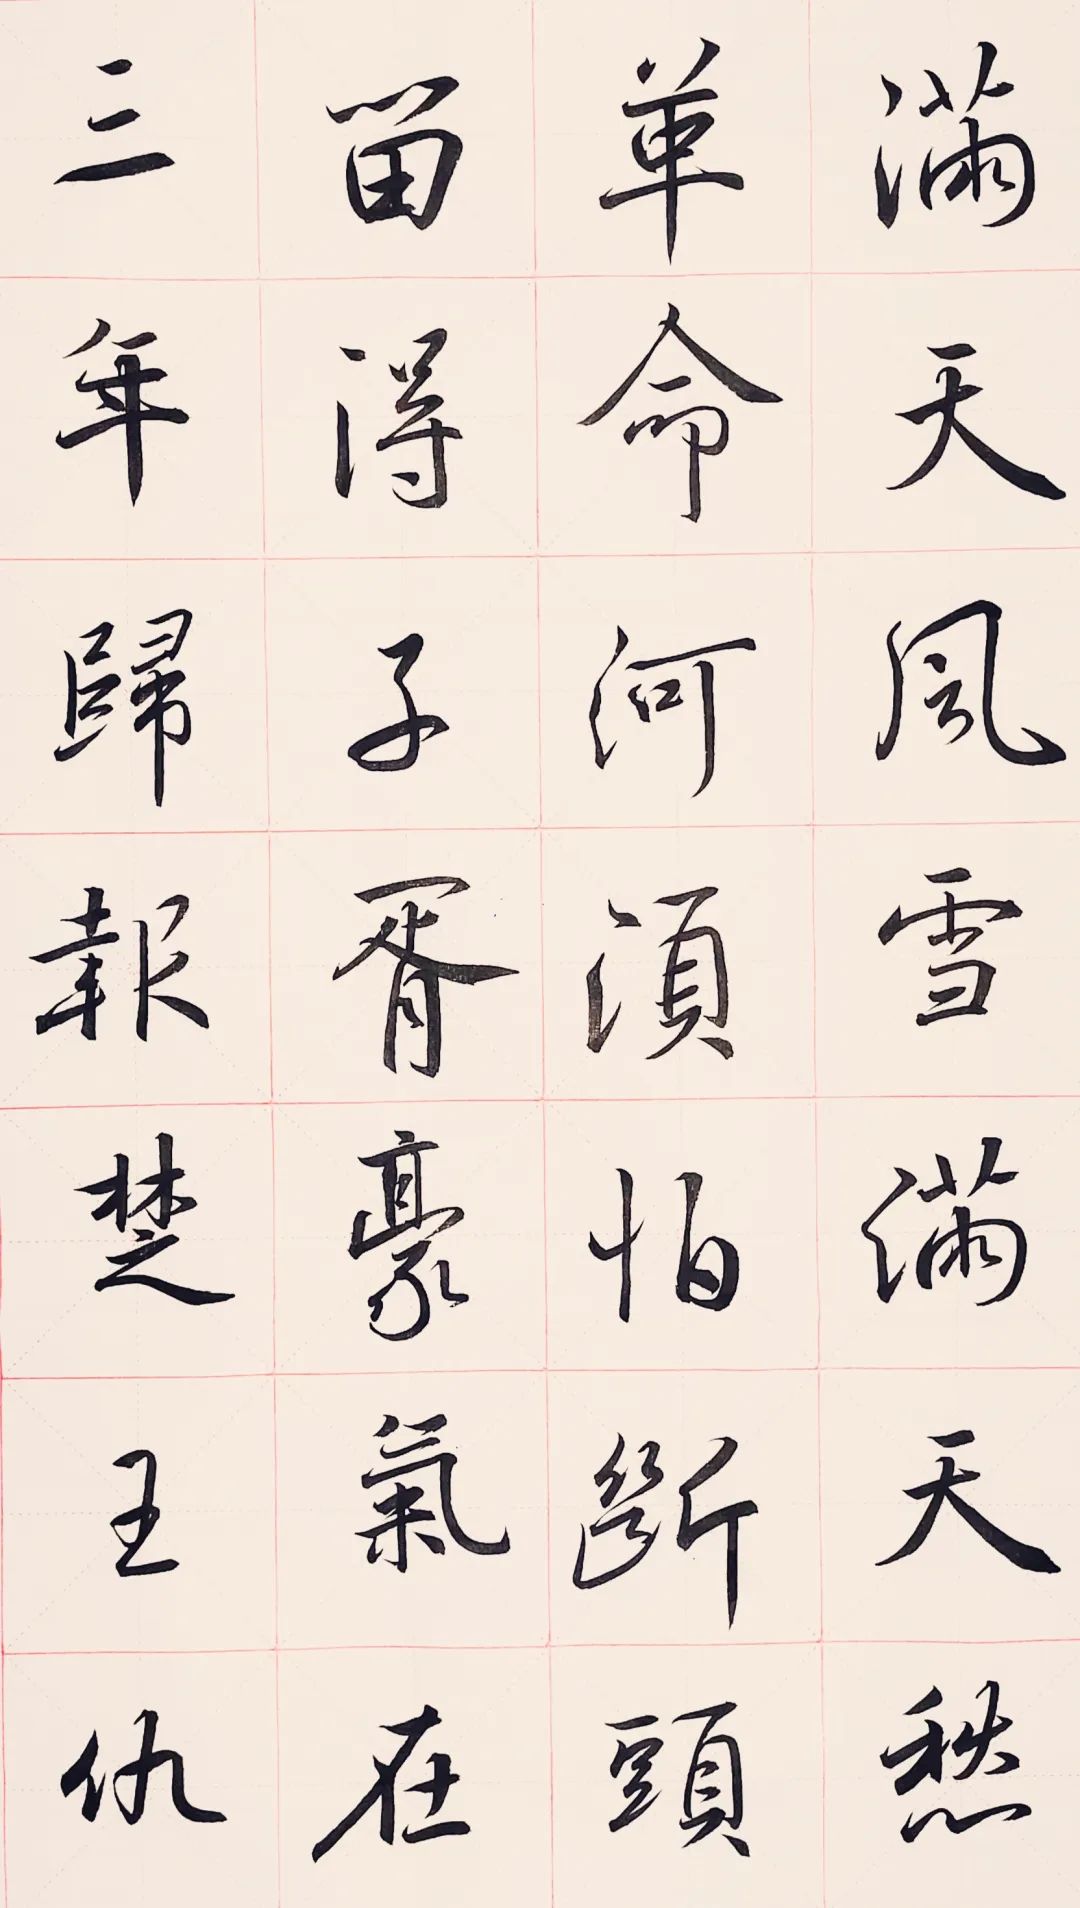 滿天風雪滿天愁
革命何須怕斷頭
留得子胥豪氣在
三年歸報楚王仇